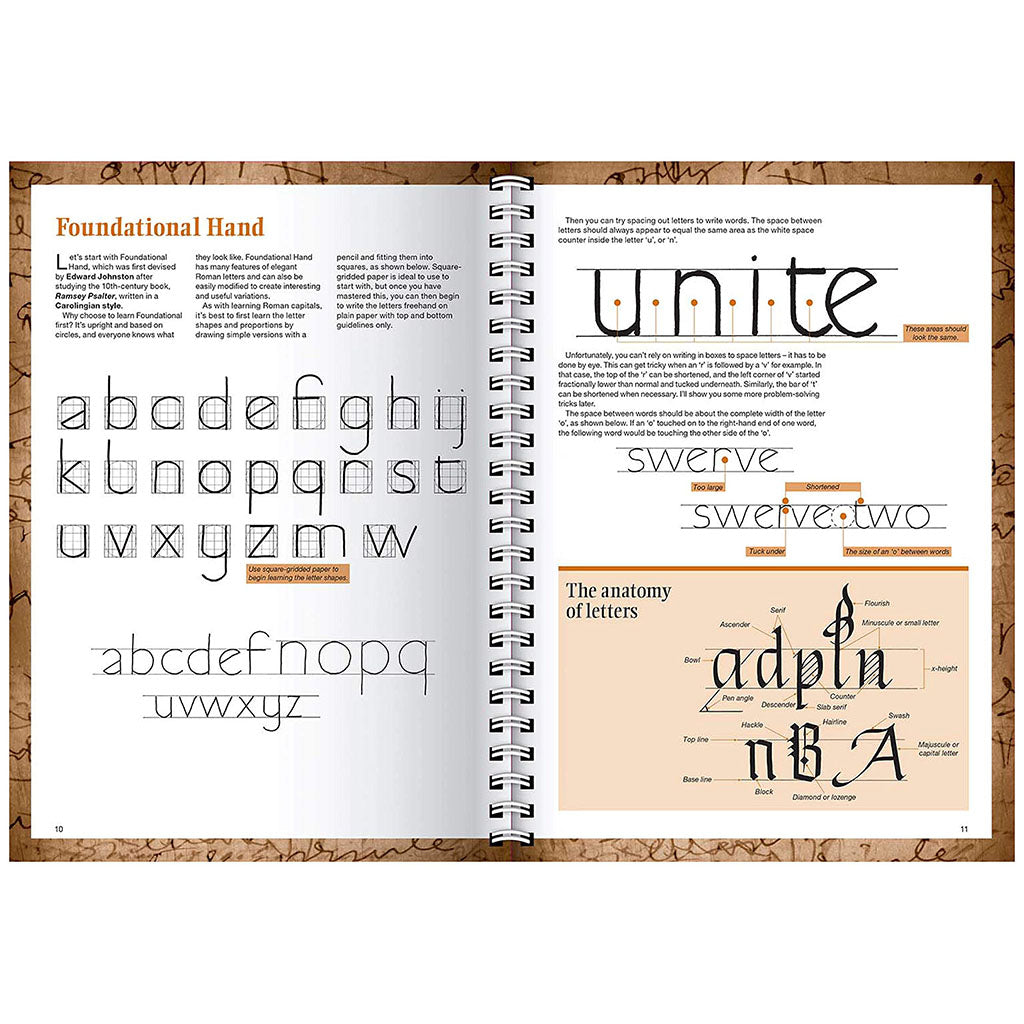 Foundational Hand
Let's start with Foundational
Hand, which was first devised
by Edward Johnston after
studying the 10th-century book,
Ramsey Psalter, written in a
Carolingian style.
Why choose to learn Foundational
first? It's upright and based on
circles, and everyone knows what
they look like. Foundational Hand
has many features of elegant
Roman letters and can also be
easily modified to create interesting
and useful variations.
As with learning Roman capitals,
it's best to first learn the letter
shapes and proportions by
drawing simple versions with a
pencil and fitting them into
squares, as shown below. Square-
gridded paper is ideal to use to
start with, but once you have
mastered this, you can then begin
to write the letters freehand on
plain paper with top and bottom
guidelines only.
a b c d e f g h i j
k l n o p q r s t
u v x y z m w
Use square-gridded paper to
begin learning the letter shapes.
abcdefnopq
uvwxyz
10
Then you can try spacing out letters to write words. The space between
letters should always appear to equal the same area as the white space
counter inside the letter 'u', or 'n'.
unite
These areas should
look the same.
Unfortunately, you can't rely on writing in boxes to space letters – it has to be
done by eye. This can get tricky when an 'r' is followed by a 'v' for example. In
that case, the top of the 'r' can be shortened, and the left corner of 'v' started
fractionally lower than normal and tucked underneath. Similarly, the bar of 't'
can be shortened when necessary. I'll show you some more problem-solving
tricks later.
The space between words should be about the complete width of the letter
'o', as shown below. If an 'o' touched on to the right-hand end of one word,
the following word would be touching the other side of the 'o'.
swerve
Too large
Shortened
swerve two
Tuck under
The size of an 'o' between words
The anatomy
of letters
Flourish
Serif
Ascender
Minuscule or small letter
adpln
Bowl
x-height
Pen angle
Counter
Descender
Slab serif
Hackle
Hairline
Swash
Top line
nBA
Majuscule or
capital letter
Base line
Block
Diamond or lozenge
11